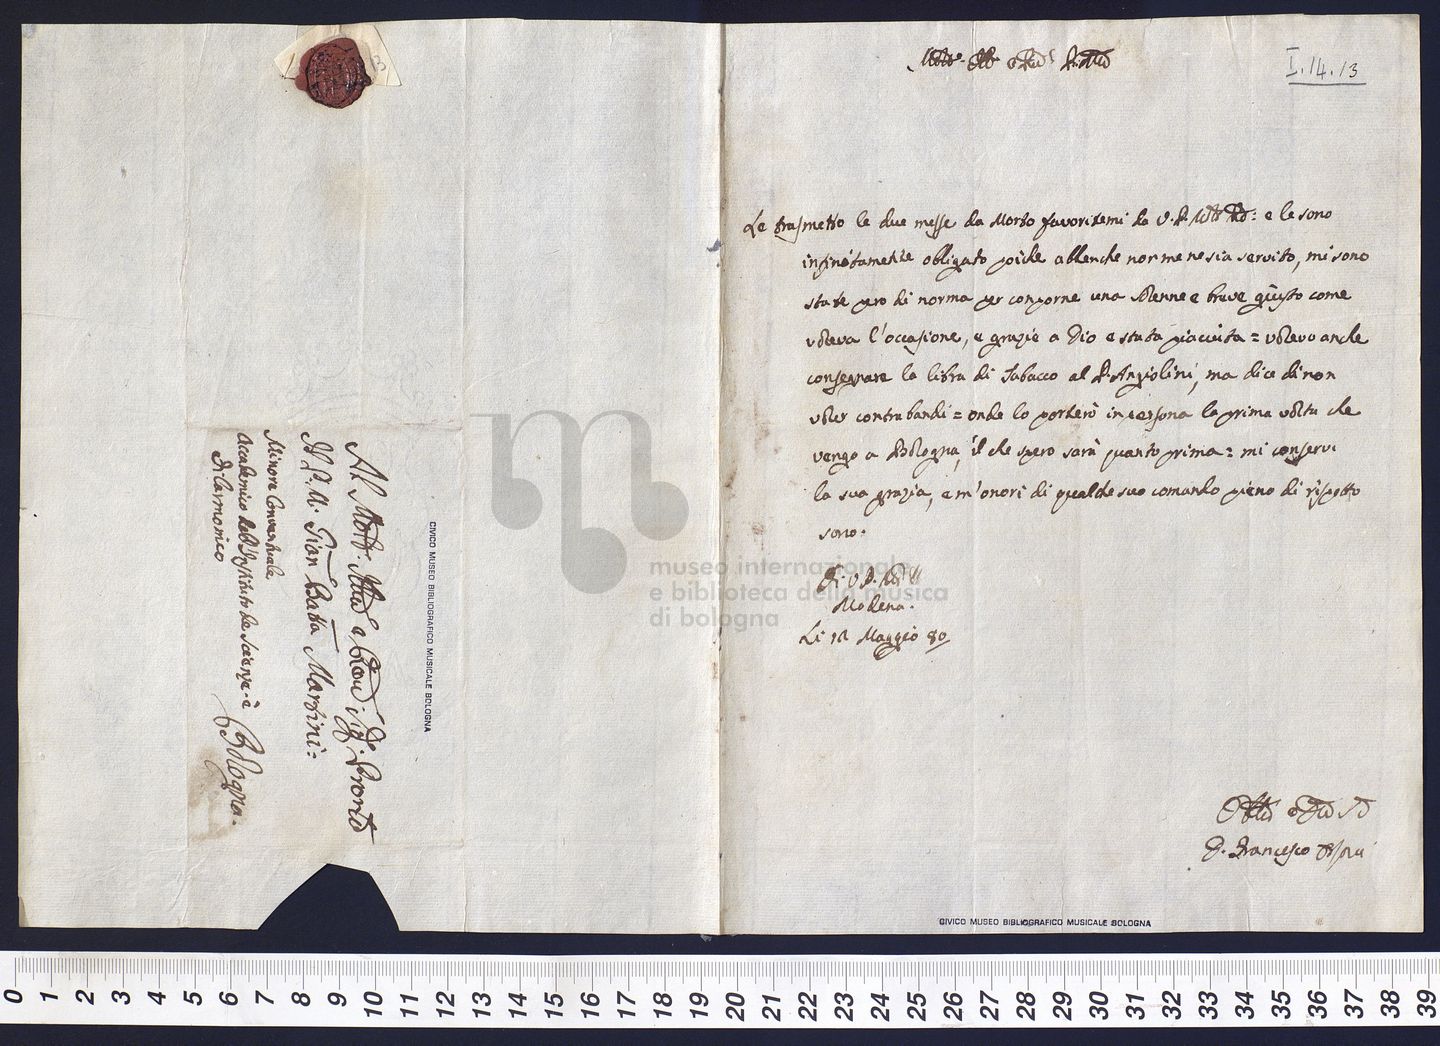 I.14.13
Le trasmetto le due messe da Morto favoritemi da V. P. e le sono
infinitamente obligato poiche abbenche non me ne sia servito, mi sono
state pero di norma per comporne una solenne e breve giusto come
voleva l'occasione, e grazie a Dio e stata piaciuta = volevo anche
consegnare la libra di Tabacco al P. Angiolini, ma dice di non
voler contrabandi = onde lo porterò in persona la prima volta che
vengo a Bologna, il che spero sarà quanto prima = mi conservi
la sua grazia, e m'onori di qualche suo comando pieno di rispetto
sono.
Di V. P.
Modena.
Li Maggio 80
D. Francesco
CIVICO MUSEO BIBLIOGRAFICO MUSICALE BOLOGNA
Al Sig. Prone
Il P. M. Gian Batta Martini =
Minore Conventuale
Accademico dell'Instituto de Scienze e
Filarmonico
Bologna.
CIVICO MUSEO BIBLIOGRAFICO MUSICALE BOLOGNA
museo internazionale
e biblioteca della musica
di bologna
0 1 2 3 4 5 6 7 8 9 10 11 12 13 14 15 16 17 18 19 20 21 22 23 24 25 26 27 28 29 30 31 32 33 34 35 36 37 38 39